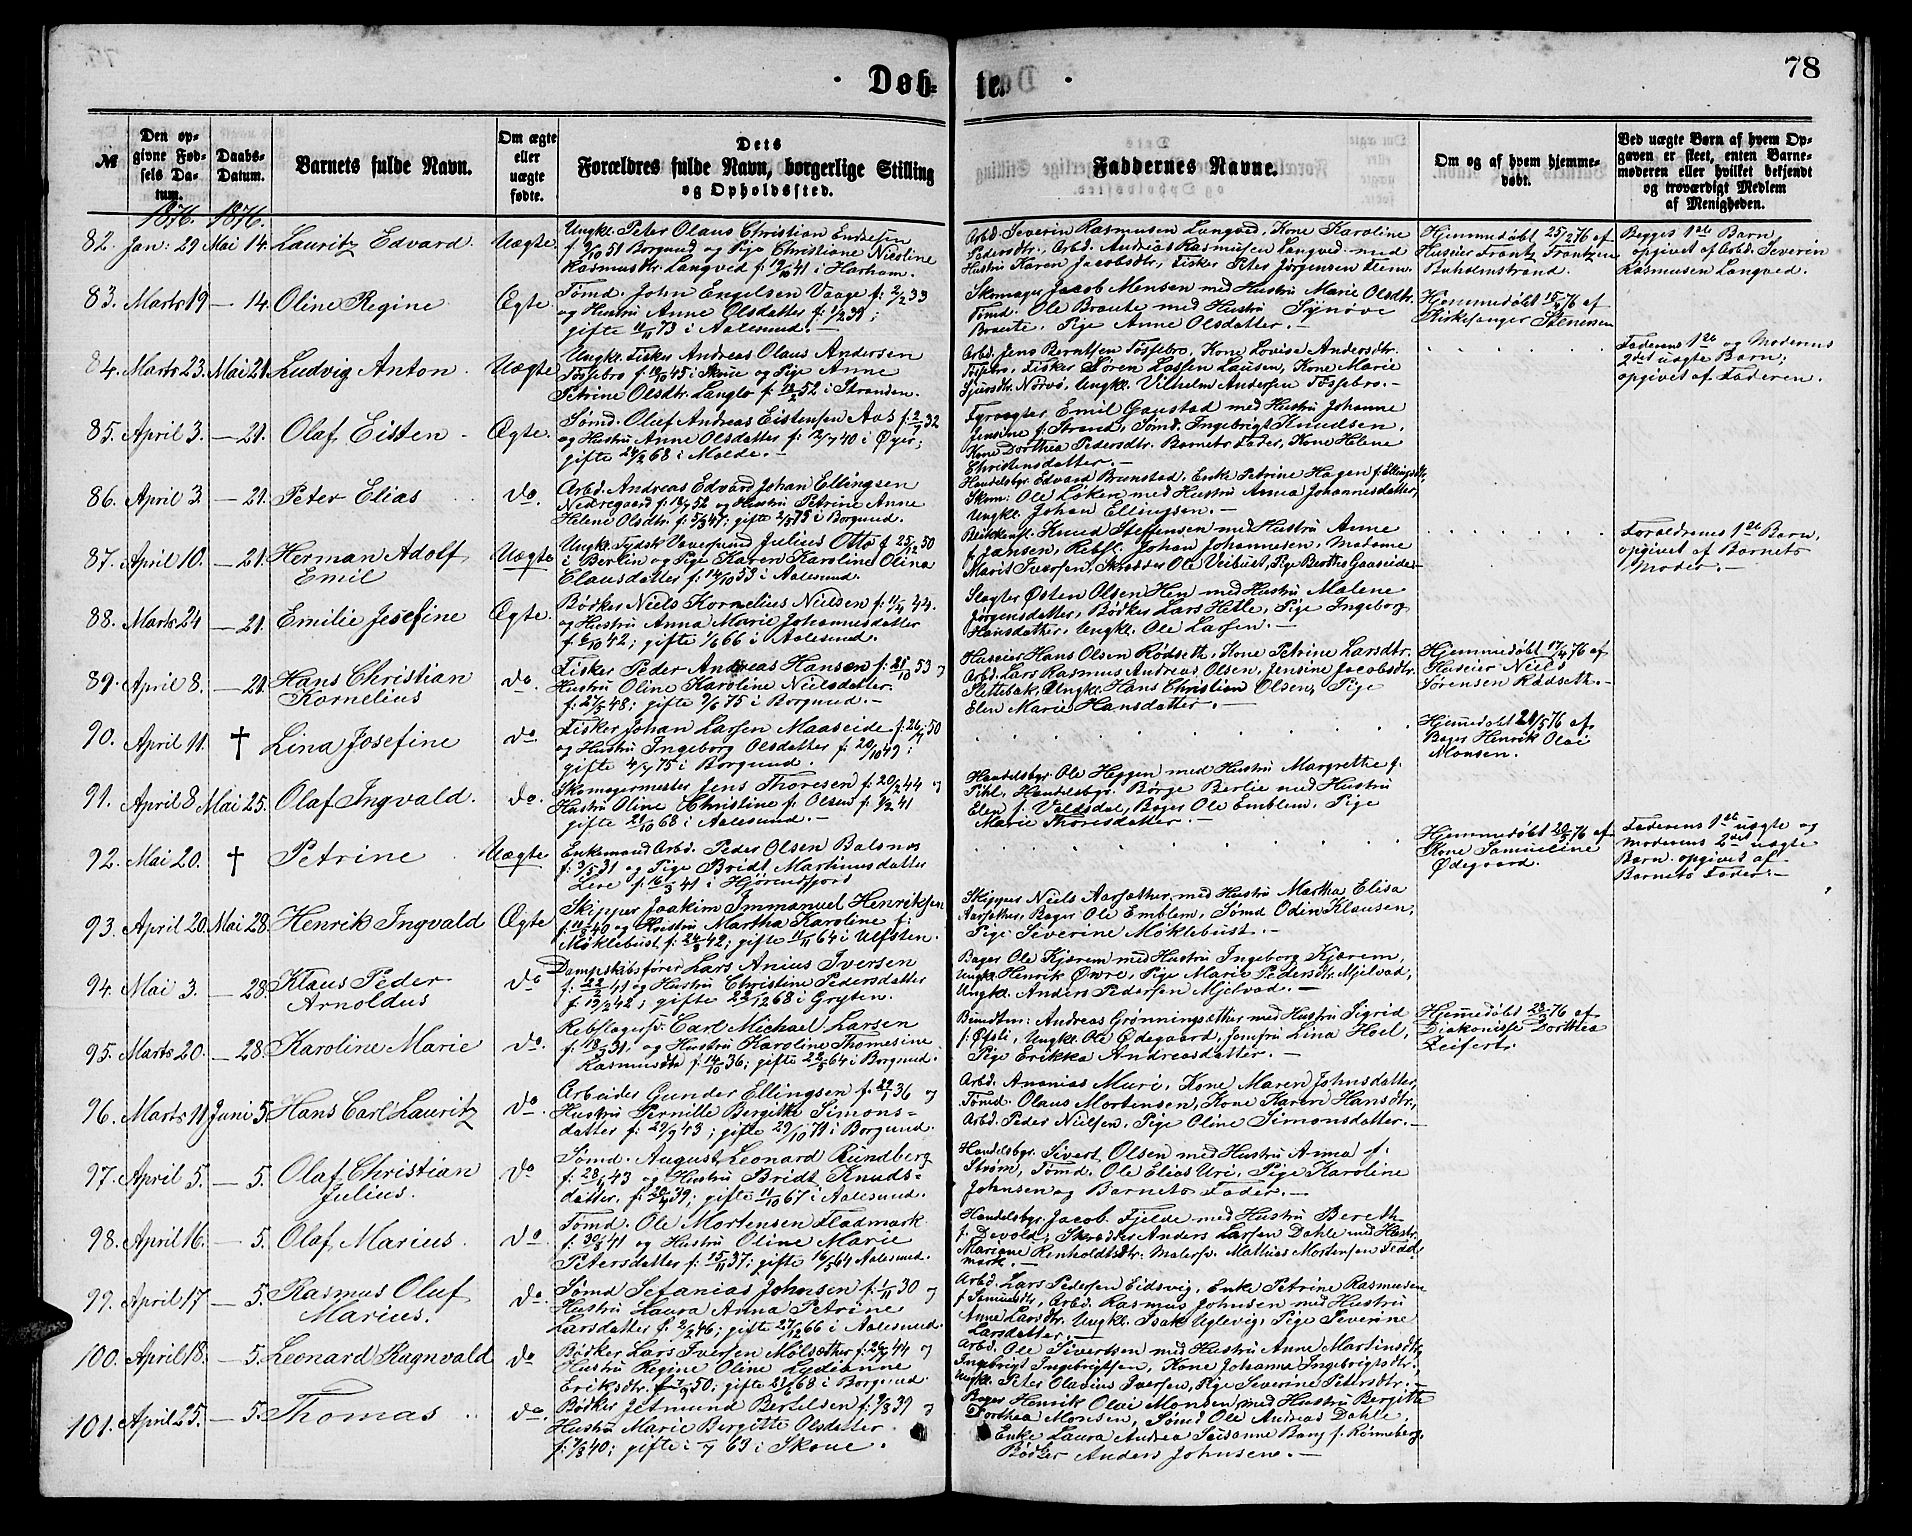 78
Døb-te.
№
Den op-
givne Fød-
sels Da-
tum.
Daabs-
Datum.
Barnets fulde Navn.
Om ægte
eller
uægte
fødte.
Dets
Forældres fulde Navn, borgerlige Stilling
og Opholdssted.
Faddernes Navne.
Om og af hvem hjemme-
døbt.
Ved uægte Børn af hvem Op-
gaven er skeet, enten Barne-
moderen eller hvilket bekjendt
og troværdigt Medlem
af Menigheden.
1876. 1876.
82. Jan: 29 Mai 14. Lauritz Edvard. Uægte.
Ungkl. Peter Olaus Christian Endresen
f. 9/10 51 Borgund og Pige Christiane Nicoline
Rasmusdtr. Langved f: 41 i Harham.
Arbd. Severin Rasmussen Langved, Kone Karoline
Pedersdtr. Arbd. Andreas Rasmussen Langved med
Hustru Karen Jacobsdtr, Fisker Peter Jørgensen Flem.
Hjemmedøbt 25/2 76 af
Huseier Frantz Frantzen
Buholmstrand.
Begges 1ste Barn,
opgivet af Arbd. Severin
Rasmussen Langved.
83. Marts 19 — 14. Oline Regine Ægte.
Tømd. John Engelsen Vaage f: 2/2 33
og Hustru Anne Olsdatter f: 1/2 39;
gifte 11/11 73 i Aalesund. —
Skomager Jacob Monsen med Hustru Marie Olsdtr.
Tømd. Ole Braute med Hustru Synøve
Braute, Pige Anne Olsdatter. —
Hjemmedøbt 15/4 76 af
Kirkesanger Stenersen
84. Marts 23. Mai 21. Ludvig Anton. Uægte
Ungkl. Fisker Andreas Olaus Andersen
Fossebro f. 45 i Skoue og Pige Anne
Petrine Olsdtr. Langlo f: 52 i Stranden.
Arbd. Jens Berntsen Fossebro, Kone Lovise Andersdtr.
Fossebro, Fisker Sören Lassen Lausen, Kone Marie
Sjursdtr. Norvø, Ungkl. Vilhelm Andersen Fossebro. —
Faderens 1ste og Moderens
2det uægte Barn;
opgivet af Faderen.
85. April 3. — 21. Olaf Eisten. Ægte.
Sømd. Oluf Andreas Eistensen Aas f: 32
og Hustru Anne Olsdatter f: 12/7 40 i Øyer;
gifte 24/2 68 i Molde. —
Fyrvogter Emil Gaustad med Hustru Johanne
Jensine f: Strand, Sømd. Ingebrigt Knudsen,
Kone Dorthea Pedersdtr. Barnets Fader, Kone Helene
Christensdatter. —
86. April 3. — 21. Peter Elias do.
Arbd. Andreas Edvard Johan Ellingsen
Nedregaard f: 52 og Hustru Petrine Anne
Helene Olsdtr. f: 5/3 47; gifte 75 i Borgund.
Handelsbgr. Edvard Brunstad. Enke Petrine Hagen f. Ellingsdtr.
Skom: Ole Løken med Hustru Anna Johannesdatter,
Ungkl. Johan Ellingsen. —
87. April 10. — 21. Herman Adolf
Emil Uægte
Ungkl. Tydsk Julius Otto f 25/12 50
i Berlin og Pige Karen Karoline Olina
Clausdatter f: 14/10 53 i Aalesund.
Blikkensl. Knud Steffensen med Hustru Anne
f: Jansen, Rebsl. Johan Johannesen, Madame
Marit Iversen, Skrædder Ole Veibust, Pige Berthe Gaaseide —
Forældrenes 1ste Barn,
opgivet af Barnets
Moder. —
88. Marts 24 — 21. Emilie Josefine Ægte.
Bødker Niels Kornelius Nielsen f: 11/4 44.
og Hustru Anna Marie Johannesdatter
f. 6/10 42; gifte 1/6 66 i Aalesund.
Slagter Østen Olsen Hen med Hustru Malene
Jörgensdatter, Bødker Lars Helle, Pige Ingeborg
Hansdatter, Ungkl. Ole Larsen. —
89. April 8. — 21. Hans Christian
Kornelius do.
Fisker Peder Andreas Hansen f: 21/10 53 og
Hustru Oline Karoline Nielsdatter
f: 27/5 48; gifte 75 i Borgund. —
Huseier Hans Olsen Rødseth, Kone Petrine Larsdtr.
Arbd. Lars Rasmus Andreas Olsen, Jensine Jacobsdtr.
Slettebak, Ungkl. Hans Christian Olsen, Pige
Elen Marie Hansdatter. —
Hjemmedøbt 17/4 76 af
Huseier Niels
Sørensen Rødseth. —
90. April 11. † Lina Josefine do
Fisker Johan Larsen Maaseide f: 26/7 50
og Hustru Ingeborg Olsdatter f: 20/10 49;
gifte 4/7 75 i Borgund.
Hjemedøbt 21/5 76 af
Bager Henrik Olai
Monsen.
91. April 8 Mai 25. Olaf Ingvald. do.
Skomagermester Jens Thoresen f: 20/2 44 og
Hustru Oline Christine f. Olsen f: 9/2 41
gifte 21/10 68 i Aalesund. —
Handelsbgr. Ole Heggen med Hustru Margrethe f.
Pihl, Handelsbgr. Børge Berlie med Hustru
Elen f. Valdsdal, Bager Ole Emblem, Pige
Marie Thoresdatter. —
92. Mai 20. † Petrine Uægte
Enkemand Arbd. Peder Olsen Balsnes
f: 3/5 31 og Pige Bridt Martinusdatter
Leve f: 16/3 41 i Hjørendfjord
Hjemmedøbt 20/5 76 af
Kone Samueline
Ødegaard.
Faderens 1ste uægte og
Moderens 2det uægte
Barn. opgivet af
Barnets Fader. —
93. April 20. Mai 28. Henrik Ingvald Ægte
Skipper Joakim Immanuel Henriksen
f. 40 og Hustru Martha Karoline f:
Møklebust f: 24/3 42; gifte 11/11 64 i Ulfsten.
Skipper Niels Aarsæther med Hustru Martha Elisa
Aarsæther, Bager Ole Emblem, Sømd Odin Klausen,
Pige Severine Møklebust. —
94. Mai 3. — 28. Klaus Peder
Arnoldus do
Dampskibsfører Lars Anius Iversen
f. 22/2 41 og Hustru Christine Pedersdatter
f. 42; gifte 23/12 68 i Gryten.
Bager Ole Kjærem med Hustru Ingeborg Kjærem,
Ungkl. Henrik Øwre, Pige Marie Pedersdtr. Mjelvad,
Ungkl. Anders Pedersen Mjelvad. —
95. Marts 20. — 28. Karoline Marie do.
Rebslagersv. Carl Michael Larsen
f. 18/3 31, og Hustru Karoline Thomesine
Rasmusdtr. f: 14/10 36; gifte 22/5 64 i Borgund.
Bundtm: Andreas Grønningsæther med Hustru Sigrid
f. Øfsti, Ungkl. Ole Ødegaard, Jomfru Lina Hoel,
Pige Erikka Andreasdatter. —
Hjemedøbt 28/3 76 af
Diakonisse Dorthea
Zeifert.
96. Marts 11 Juni 5. Hans Carl Lauritz do.
Arbeider Gunder Ellingsen f. 29/1 36 og
Hustru Pernille Bergitte Simons-
datter f: 29/9 43; gifte 29/10 71 i Borgund.
Arbd. Ananias Muri, Kone Maren Johnsdatter,
Tømd. Olaus Mortensen, Kone Karen Hansdtr,
Arbd. Peder Nielsen, Pige Oline Simonsdatter. —
97. April 5. — 5. Olaf Christian
Julius. do
Sømd. August Leonard Rundberg
f: 28/1 43 og Hustru Bridt Knuds-
datter. f: 39; gifte 11/10 67 i Aalesund.
Handelsbgr. Sivert Olsen med Hustru Anna f:
Strøm, Tømd. Ole Elias Uri, Pige Karoline
Johnsen og Barnets Fader. —
98. April 16. — 5. Olaf Marius. do.
Tømd. Ole Mortensen Fladmark
f: 30/8 41 og Hustru Oline Marie
Petersdatter f: 15/11 37; gifte 16/5 64 Aalesund.
Handelsbgr. Jacob Fjelde med Hustru Bereth
f. Devold, Skrædder Anders Larsen Dahle med Hustr.
Mariane Reinholdtsdtr. Malersv. Mathias Mortensen Flad-
mark. —
99. April 17 — 5. Rasmus Oluf
Marius. do.
Sømd Sefanias Johnsen f: 1/11 30 og
Hustru Laura Anna Petrine
Larsdatter f: 2/2 46; gifte 27/12 66 i Aalesund.
Arbd. Lars Pedersen Eidsvig, Enke Petrine Rasmussen
f. Samuelsdtr, Arbd. Rasmus Johnsen med Hustru
Anne Larsdtr. Ungkl. Isak Uglevig, Pige Severine
Larsdatter. —
100. April 18. — 5. Leonard Ragnvald do
Bødker Lars Iversen Molsæther f: 26/7 44 og
Hustru Regine Oline Lydianne
Eriksdtr. f: 50; gifte 68 i Borgund.
Arbd. Ole Sivertsen med Hustru Anne Martinsdtr.
Ingebrigt Ingebrigtsen, Kone Johanna Ingebrigtsdtr.
Ungkl. Peter Olavius Iversen, Pige Severine Petersdtr. —
101. April 25. — 5. Thomas do.
Bødker Jetmund Bertelsen f: 9/8 39 og
Hustru Marie Bergitte Olsdatter
f: 7/8 40; gifte i 63 i Skoue.
Bager Henrik Olai Monsen med Hustru Bergitte
Dorthea Monsen, Sømd Ole Andreas Dahle,
Enke Laura Andrea Susanne Bang f. Rønneberg,
Bødker Anders Johnsen. —